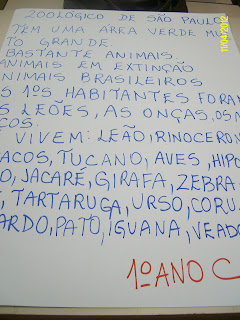 ZOOLÓGICO DE SÃO PAULO
TEM UMA ÁREA VERDE MUI
TO GRANDE.
BASTANTE ANIMAIS
ANIMAIS EM EXTINÇÃO
NIMAIS BRASILEIROS
S 1ºS HABITANTES FORAM
S LEÕES, AS ONÇAS, OS M
COS.
VIVEM: LEÃO, RINOCERON
ACOS, TUCANO, AVES, HIPO
O, JACARÉ, GIRAFA, ZEBRA
, TARTARUGA, URSO, CORUJ
ARDO, PATO, IGUANA, VEADO
1º ANO C